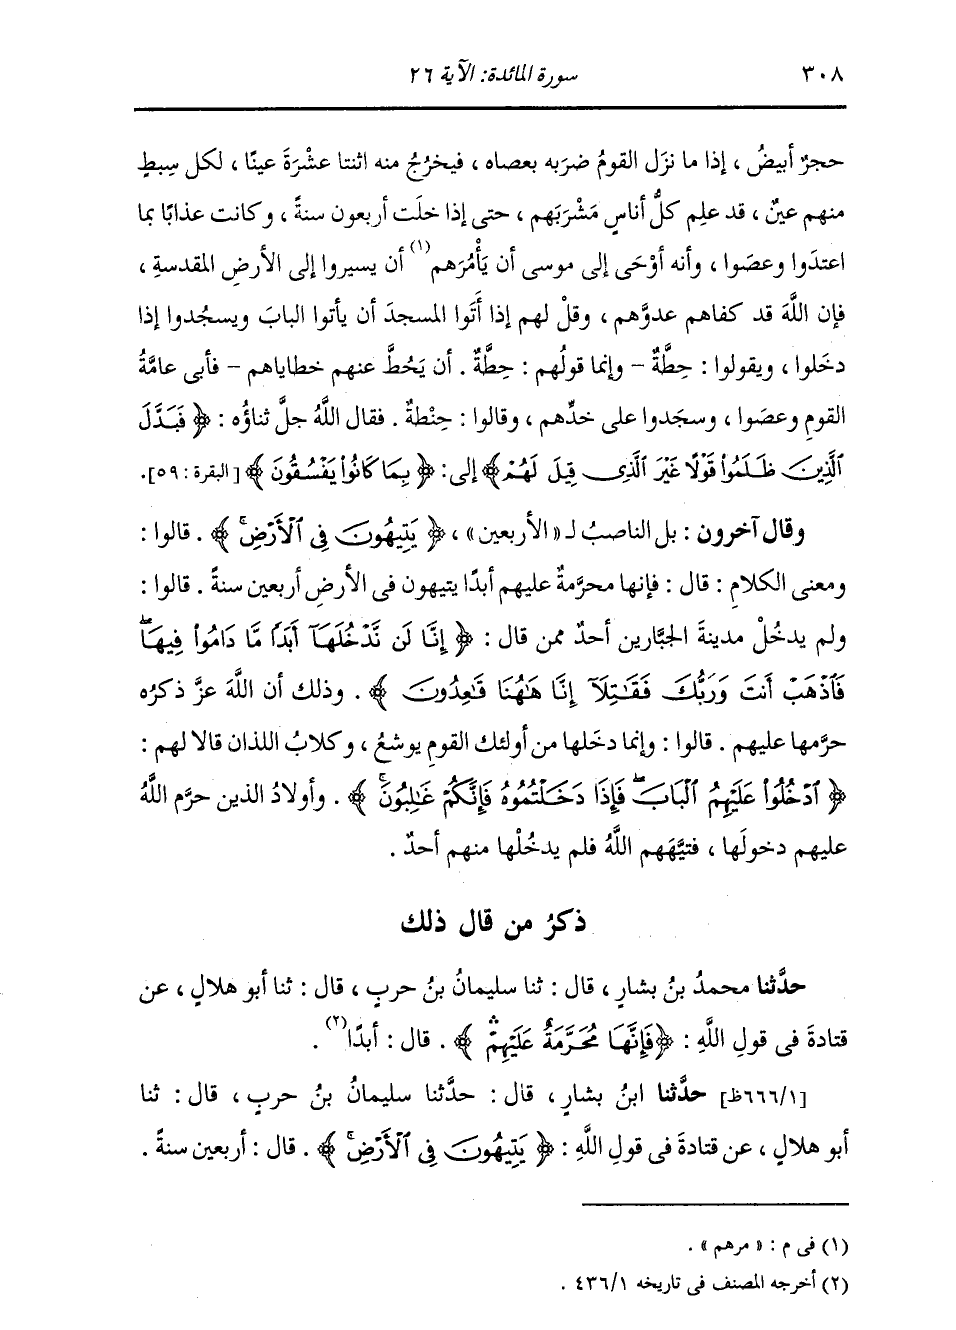 ٣٠٨ سورة المائدة: الآية ٢٦
حجرٌ أبيضُ، إذا ما نزَل القومُ ضرَبه بعصاه، فيخرُجُ منه اثنتا عشْرَةَ عينًا، لكل سِبطٍ
منهم عينٌ، قد علِم كلُّ أناسٍ مَشْرَبَهم، حتى إذا خلَت أربعون سنةً، وكانت عذابًا بما
اعتدَوا وعصَوا، وأنه أوْحَى إلى موسى أن يَأْمُرَهم(١) أن يسيروا إلى الأرضِ المقدسةِ،
فإن اللَّهَ قد كفاهم عدوَّهم، وقلْ لهم إذا أَتَوا المسجدَ أن يأتوا البابَ ويسجُدوا إذا
دخَلوا، ويقولوا: حِطَّةٌ – وإنما قولُهم: حِطَّةٌ. أن يَحُطَّ عنهم خطاياهم – فأبى عامَّةُ
القومِ وعصَوا، وسجَدوا على خدِّهم، وقالوا: حِنْطةٌ. فقال اللَّهُ جلَّ ثناؤُه: ﴿فَبَدَّلَ
الَّذِينَ ظَلَمُوا۟ قَوْلًا غَيْرَ الَّذِى قِيلَ لَهُمْ﴾ إلى: ﴿بِمَا كَانُوا۟ يَفْسُقُونَ﴾ [البقرة: ٥٩].
وقال آخرون: بل الناصبُ لـ «الأربعين»، ﴿يَتِيهُونَ فِى ٱلْأَرْضِۚ﴾. قالوا:
ومعنى الكلامِ: قال: فإنها محرَّمةٌ عليهم أبدًا يتيهون فى الأرضِ أربعين سنةً. قالوا:
ولم يدخُلْ مدينةَ الجبَّارين أحدٌ ممن قال: ﴿إِنَّا لَن نَّدْخُلَهَآ أَبَدًا مَّا دَامُوا۟ فِيهَاۖ
فَٱذْهَبْ أَنتَ وَرَبُّكَ فَقَٰتِلَآ إِنَّا هَٰهُنَا قَٰعِدُونَ﴾. وذلك أن اللَّهَ عزَّ ذكرُه
حرَّمها عليهم. قالوا: وإنما دخَلها من أولئك القومِ يوشعُ، وكلابُ اللذان قالا لهم:
﴿ٱدْخُلُوا۟ عَلَيْهِمُ ٱلْبَابَۖ فَإِذَا دَخَلْتُمُوهُ فَإِنَّكُمْ غَٰلِبُونَۚ﴾. وأولادُ الذين حرَّم اللَّهُ
عليهم دخولَها، فتيَّهَهم اللَّهُ فلم يدخُلْها منهم أحدٌ.
ذكرُ من قال ذلك
حدَّثنا محمدُ بنُ بشارٍ، قال: ثنا سليمانُ بنُ حربٍ، قال: ثنا أبو هلالٍ، عن
قتادةَ فى قولِ اللَّهِ: ﴿فَإِنَّهَا مُحَرَّمَةٌ عَلَيْهِمْۛ﴾. قال: أبدًا(٢).
[١/٦٦٦ظ] حدَّثنا ابنُ بشارٍ، قال: حدَّثنا سليمانُ بنُ حربٍ، قال: ثنا
أبو هلالٍ، عن قتادةَ فى قولِ اللَّهِ: ﴿يَتِيهُونَ فِى ٱلْأَرْضِۚ﴾. قال: أربعين سنةً.
(١) فى م: «مرهم».
(٢) أخرجه المصنف فى تاريخه ٤٣٦/١.